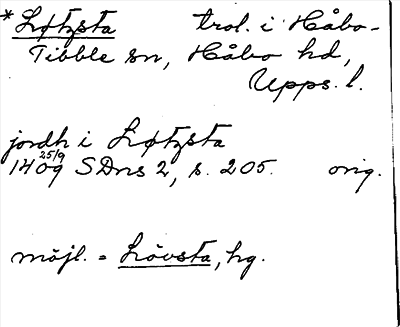 * Løtzsta trol. i Håbo-
Tibble sn, Håbo hd,
Upps. l.
jordh i Løtzsta
1409 25/9 SDns 2, s. 205. orig.
möjl. = Lövsta, hg.